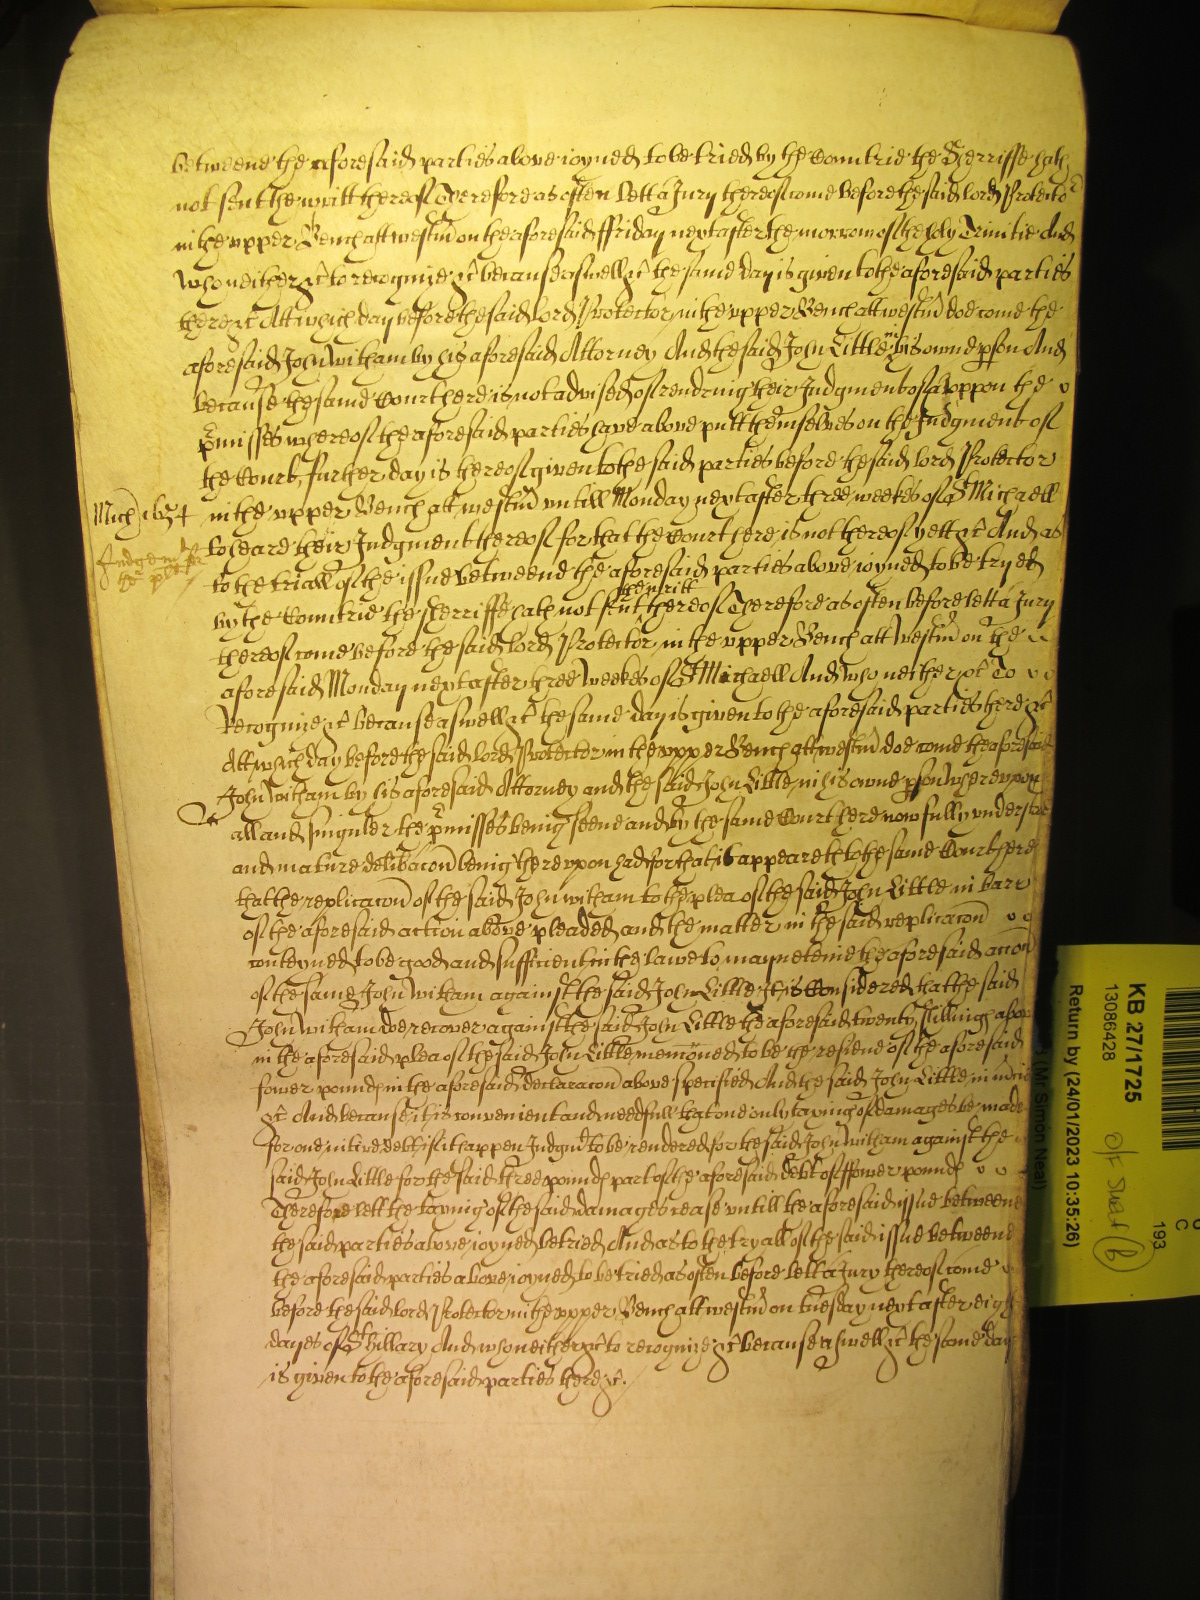 betweene the aforesaid parties above ioyned to be tried by the Countrie the Sherriffe hath
not sent the writt thereof Therefore as often lett a Jury thereof come before the said lord Protector
in the upper Bench att westm̃ on the aforesaid ffriday next after the morrow of the holy Trinitie And
who neither &c to recognize &c because aswell &c the same day is given to the aforesaid parties
here &c Att which day before the said lord Protector in the upper Bench att westm̃ doe come the
aforesaid John Witham by his aforesaid Attorney And the said John Little in his owne p̱son And
because the same Court here is not advised of rendring their Judgment of & uppon the
p̱misses whereof the aforesaid parties have above putt themselves on the Judgment of
the Court, further day is thereof given to the said parties before the said lord Protector
Mich 1654 in the upper Bench att westm̃ untill Monday next after three weekes of St Michaell
Judgemt for the pl
to heare their Judgment thereof for that the Court here is not thereof yett &c And as
to the triall of the issue betweene the aforesaid parties above ioyned to be tryed
by the Countrie the sherriffe hath not sent the writt thereof Therefore as often before lett a Jury
thereof come before the said lord Protector in the upper Bench att westm̃ on the
aforesaid Monday next after three weekes of St Michaell And who neither &c To
Recognize &c because aswell &c the same day is given to the aforesaid parties here &c
Att which day before the said lord Protector in the upper Bench att westm̃ doe come the aforesaid
John Witham by his aforesaid Attorney and the said John Little in his owne p̱son Whereupon
all and singuler the p̱misses being seene and by the same Court here now fully understood
and mature delibac̃on being thereupon had for that it appeareth to the same Court here
that the replicac̃on of the said John witham to the plea of the said John Little in barr
of the aforesaid action above pleaded and the matter in the said replicac̃on
conteyned to be good and sufficient in the lawe to mayneteine the aforesaid acc̃on
of the same John witham against the said John Little It is Considered that the said
John witham doe recover against the said John Little the aforesaid twenty shillings above
in the aforesaid plea of the said John Little menc̃oned to be the residue of the aforesaid
fower pounds in the aforesaid declarac̃on above specified And the said John Little in mercie
&c And because it is convenient and needfull that one only taxing of damages be made
for one intire debt if it happen Judgmt to be rendered for the said John witham against the
said John Little for the said three pounds part of the aforesaid debt of ffower pounds
Therefore lett the taxing of the said damages cease untill the aforesaid issue betweene
the said parties above ioyned be tried And as to the tryall of the said issue betweene
the aforesaid parties above ioyned to be tried as often before lett a Jury thereof come
before the said lord Protector in the upper Bench att westm̃ on tuesday next after eight
dayes of St hillary And who neither &c to recognize &c because aswell &c the same day
is given to the aforesaid parties here &c.
KB 27/1725
13086428
Return by (24/01/2023 10:35:26)
(Mr Simon Neal)
193
C